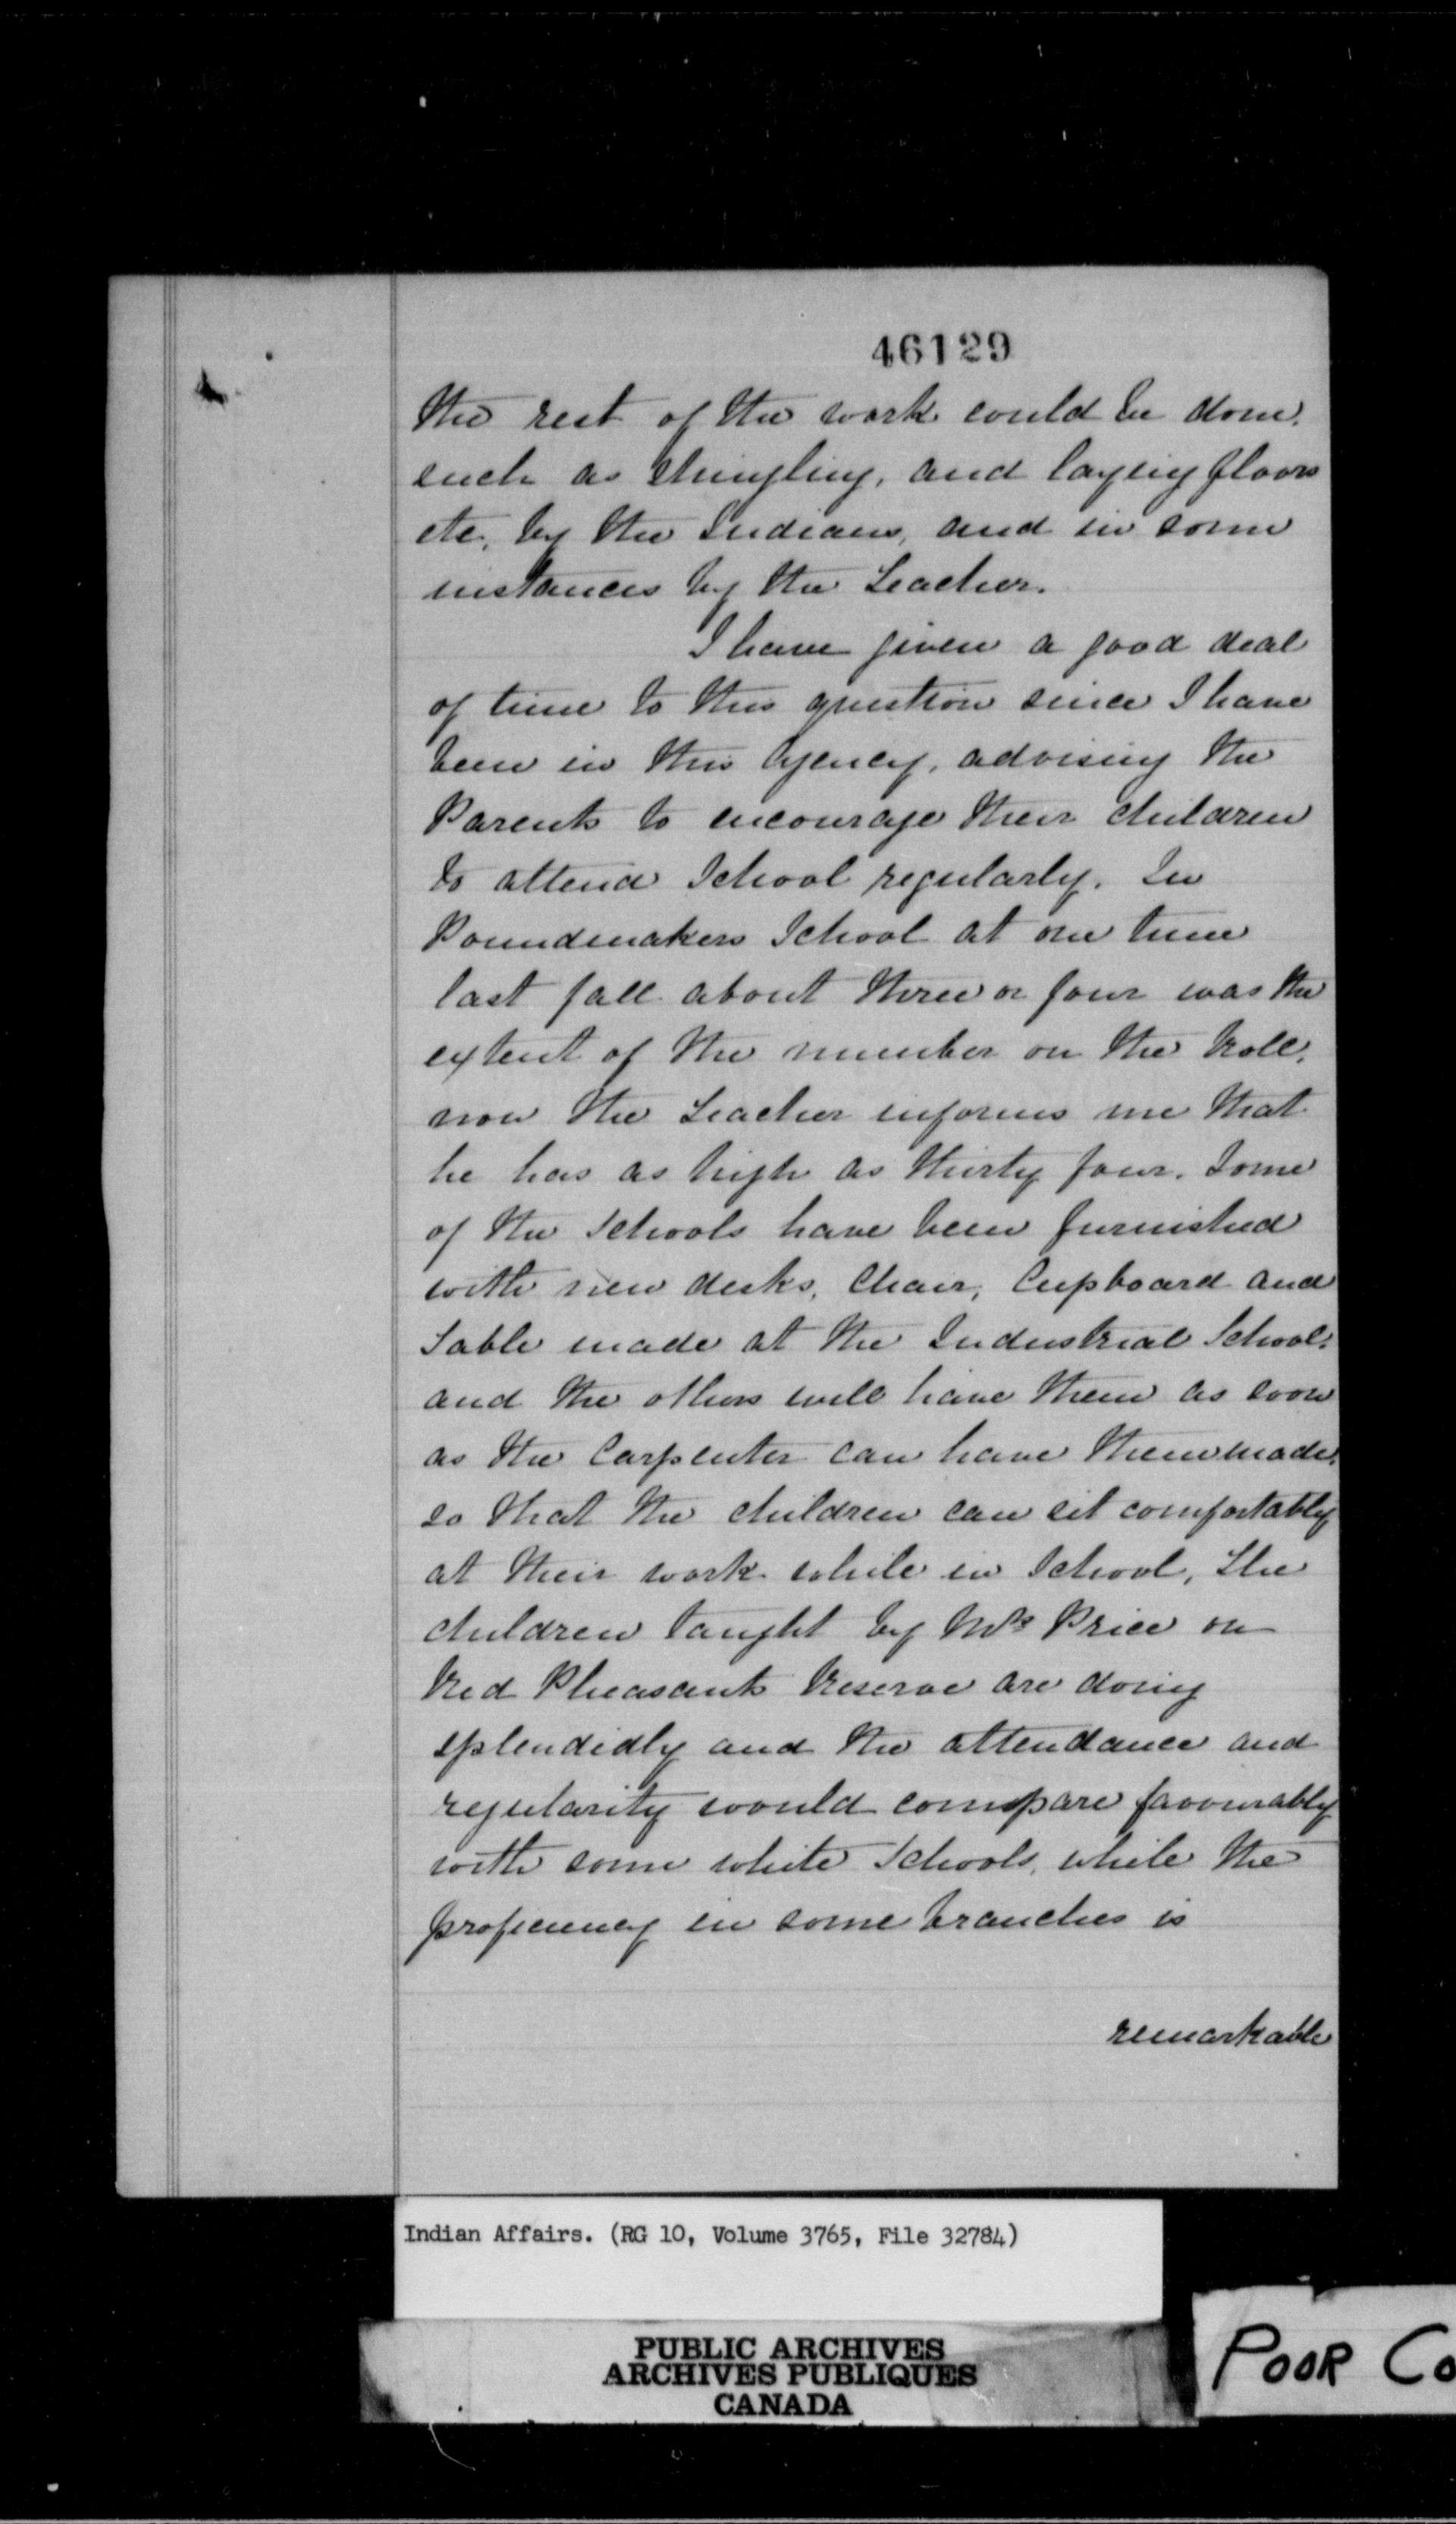 46129
the rest of the work could be done,
such as shingling, and laying floors
etc, by the Indians, and in some
instances by the Teacher.
I have given a good deal
of time to this question since I have
been in this Agency, advising the
Parents to encourage their children
to attend School regularly. In
Poundmakers School at one time
last fall about three or four was the
extent of the number on the Roll,
now the Teacher informs me that
he has as high as thirty four. Some
of the Schools have been furnished
with new desks, Chair, Cupboard and
Table made at the Industrial School,
and the others will have them as soon
as the Carpenter can have them made,
so that the children can sit comfortably
at their work while in School, The
children taught by Mr Price on
Red Pheasants Reserve are doing
splendidly and the attendance and
regularity would compare favourably
with some white Schools, while the
proficiency in some branches is
remarkable
Indian Affairs. (RG 10, Volume 3765, File 32784)
PUBLIC ARCHIVES
ARCHIVES PUBLIQUES
CANADA
POOR CO